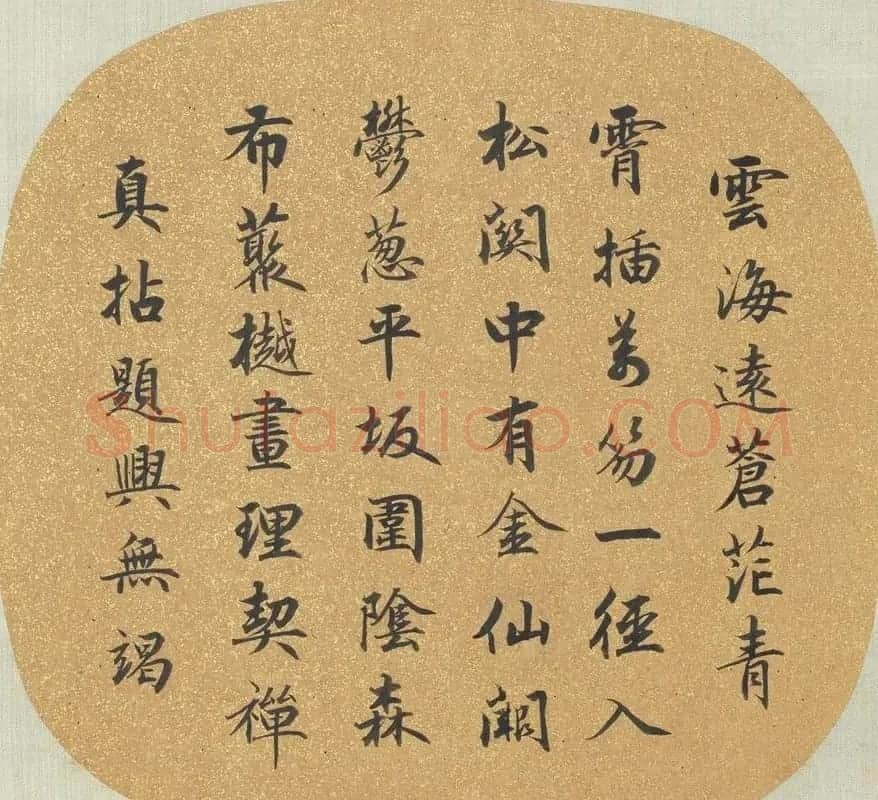 雲海遠蒼茫青
霄插萬笏一徑入
松關中有金仙闕
鬱葱平坂圍陰森
布藂樾畫理契禪
真拈題興無竭
Shufaziliao.COM